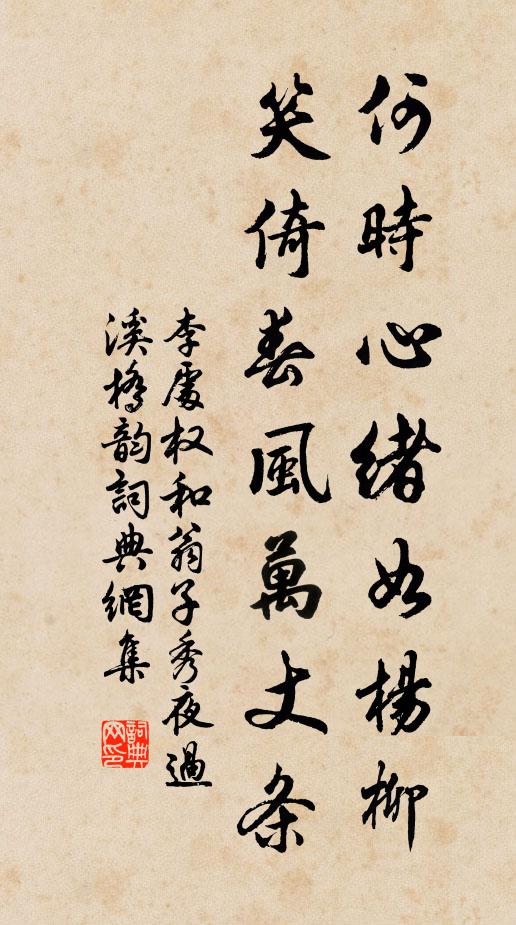 何時心緒如楊柳
笑倚春風萬丈条
李處权和翁子秀夜過
溪橋韵詞典網集
詞典網印